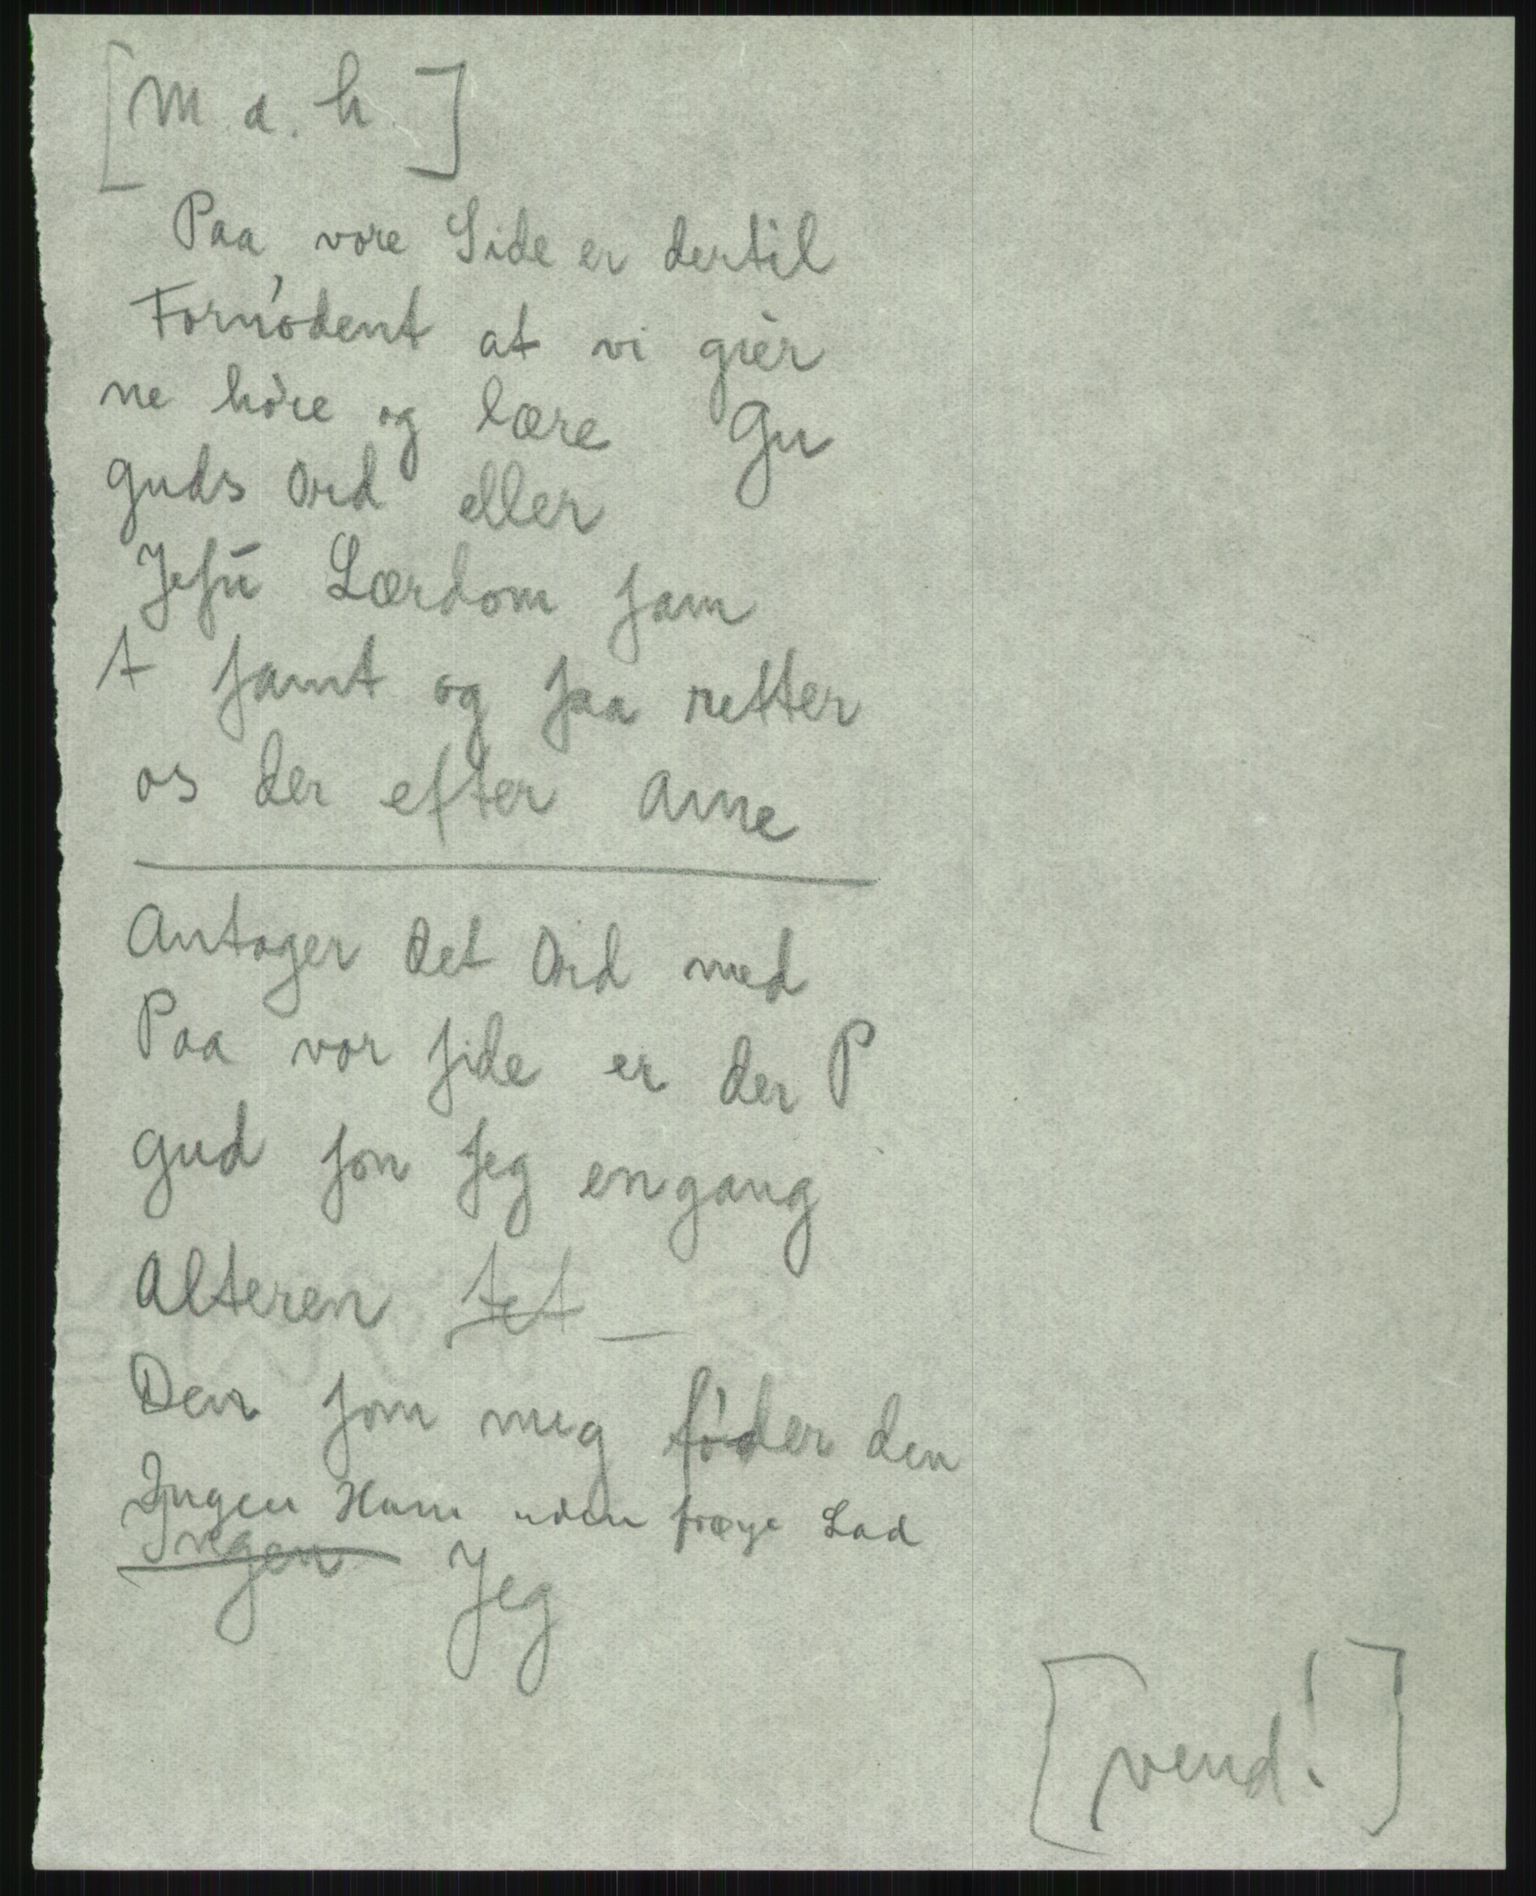 [M. a. h.]
Paa vore Side er dertil
Fornódent at vi gièr
ne hóre og lære Gu
guds Ord eller
Jesū Lærdom sam
t samt og saa retter
os der efter Ame
Antager det Ord med
Paa vor side er der P
gud son Jeg engang
Alteren tet —
Den som mig føder den
Ingen Ham uden Lad
Ingen Jeg
[vend!]